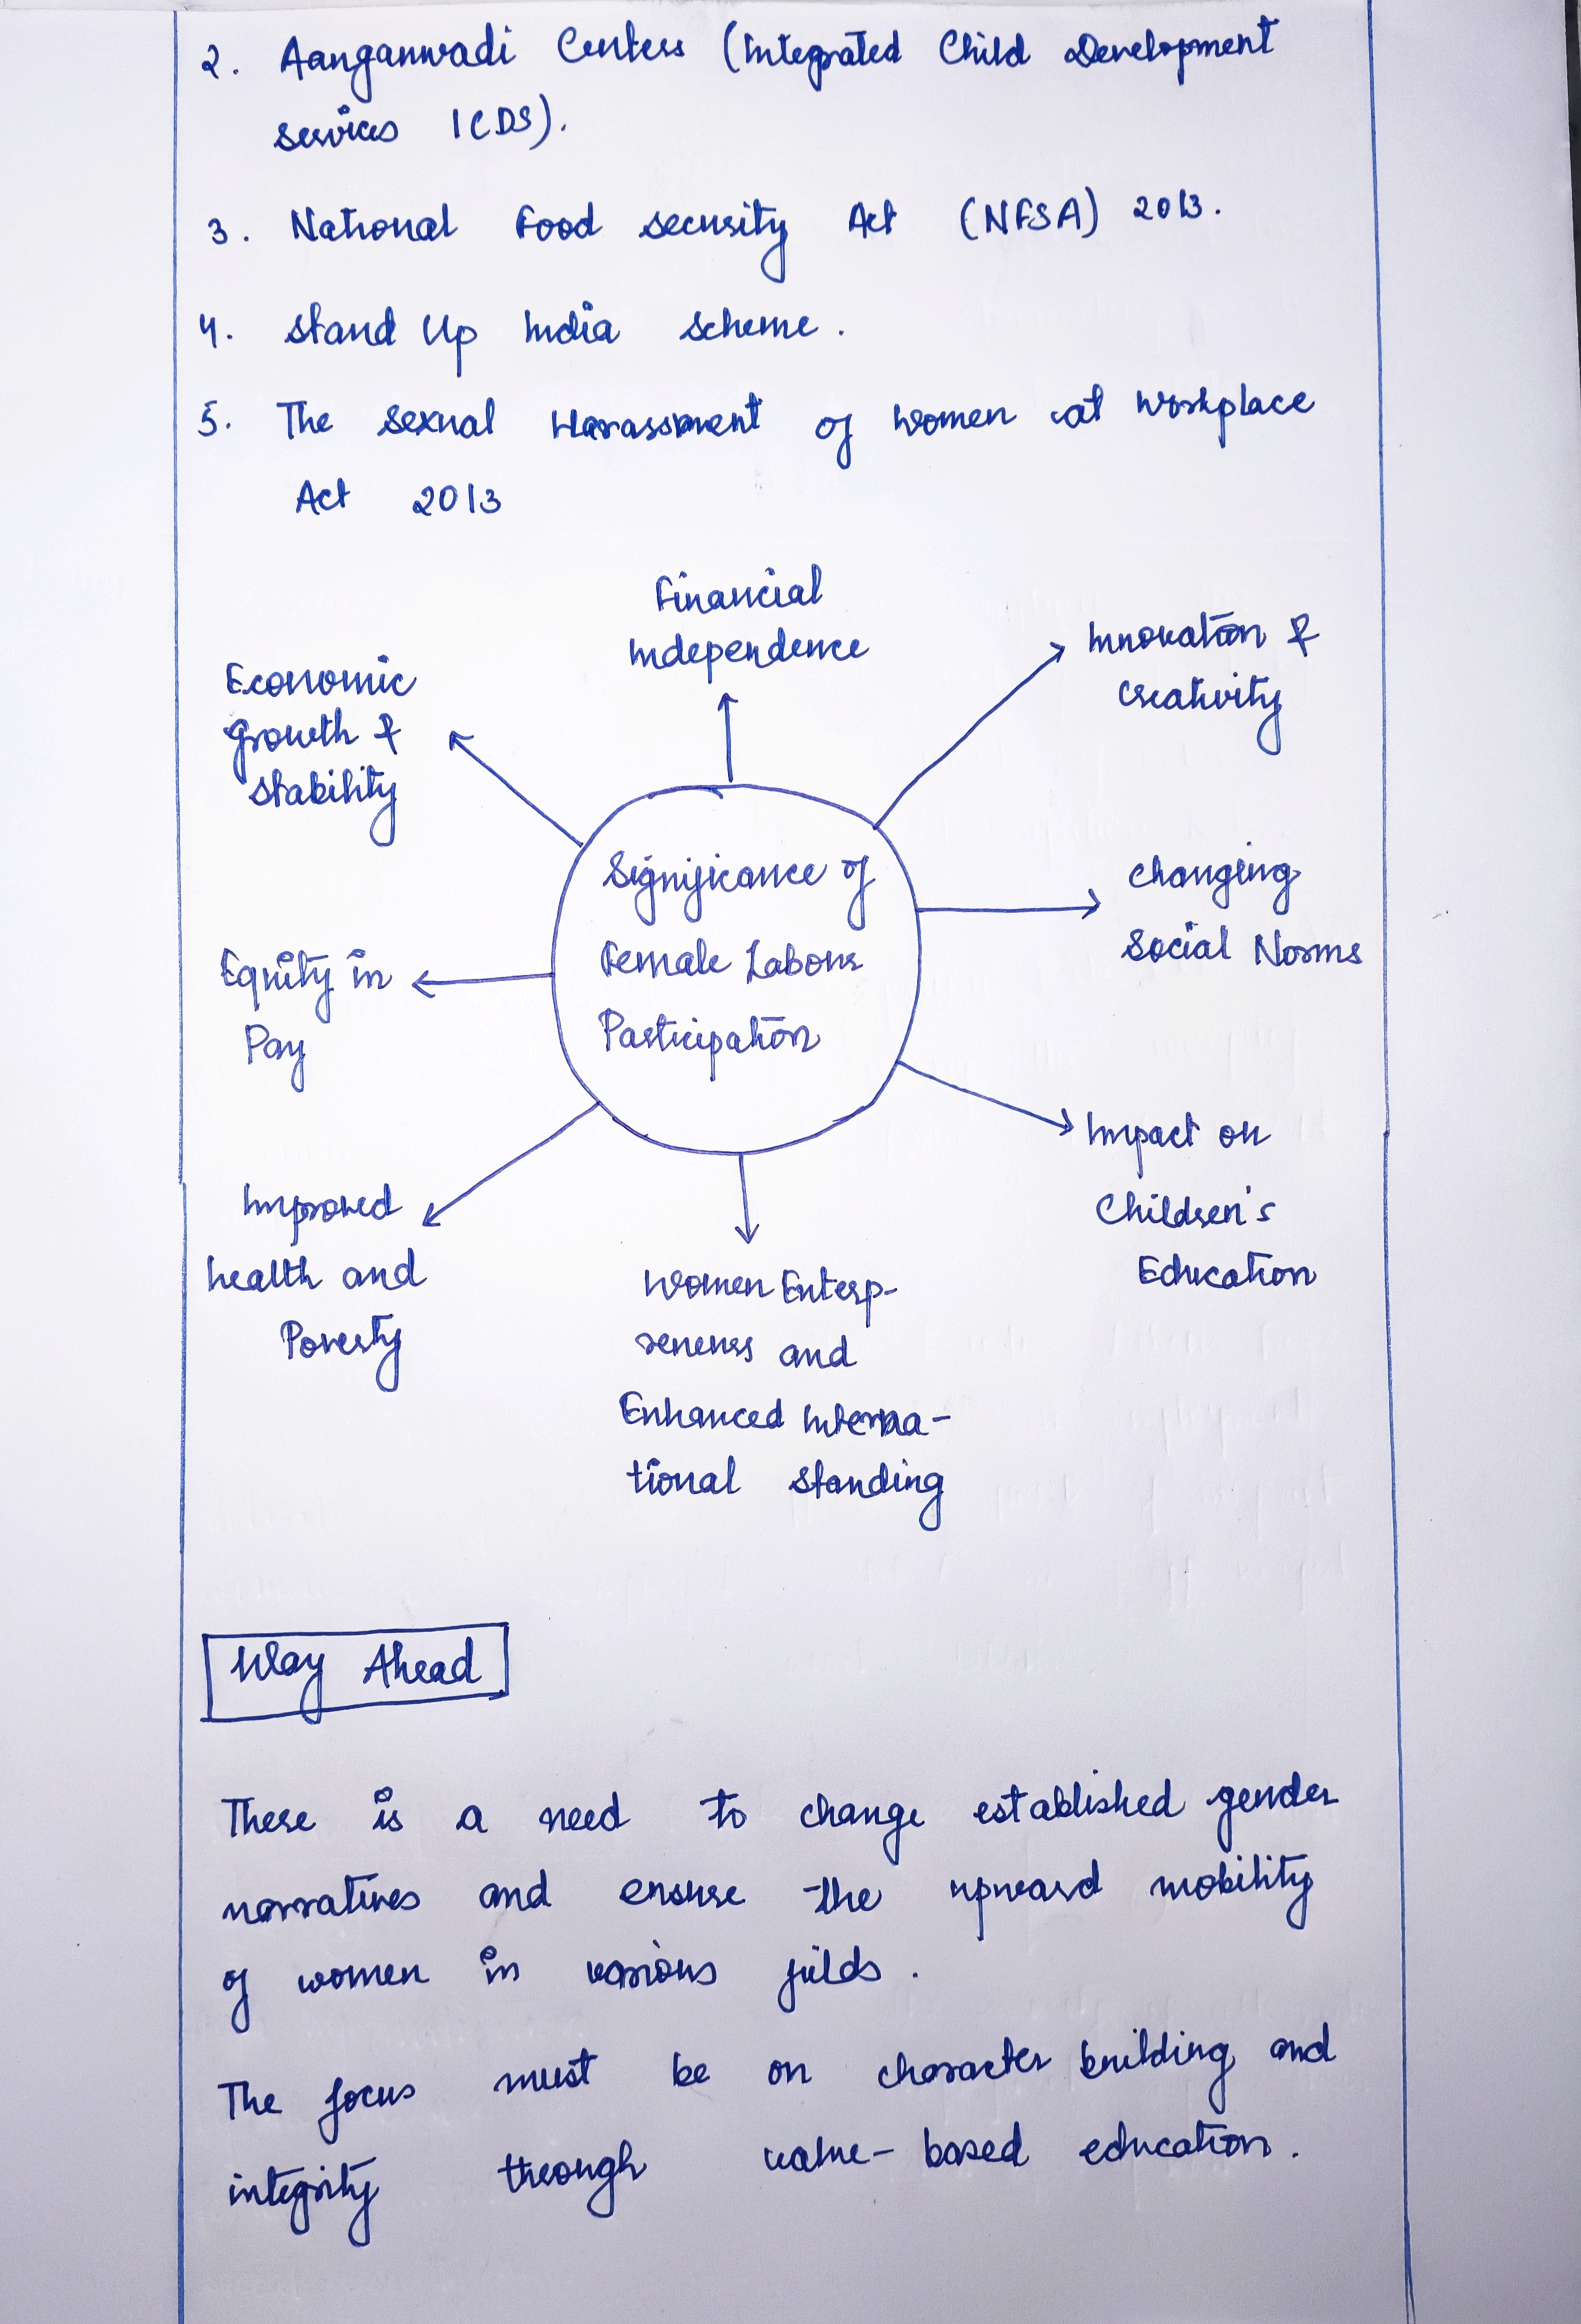 2. Aanganwadi Centers (Integrated Child Development
services ICDS).
3. National Food security Act (NFSA) 2013.
4. Stand Up India scheme.
5. The Sexual Harassment of women at workplace
Act 2013
Financial
Independence
Innovation &
Creativity
Economic
growth &
stability
Significance of
Female Labour
Participation
changing
Social Norms
Equity in
Pay
Impact on
Children's
Education
Improved
health and
Poverty
Women Enterp-
reneurs and
Enhanced Interna-
tional standing
Way Ahead
There is a need to change established gender
narratives and ensure the upward mobility
of women in various filds.
The focus must be on character building and
integrity through value-based education.